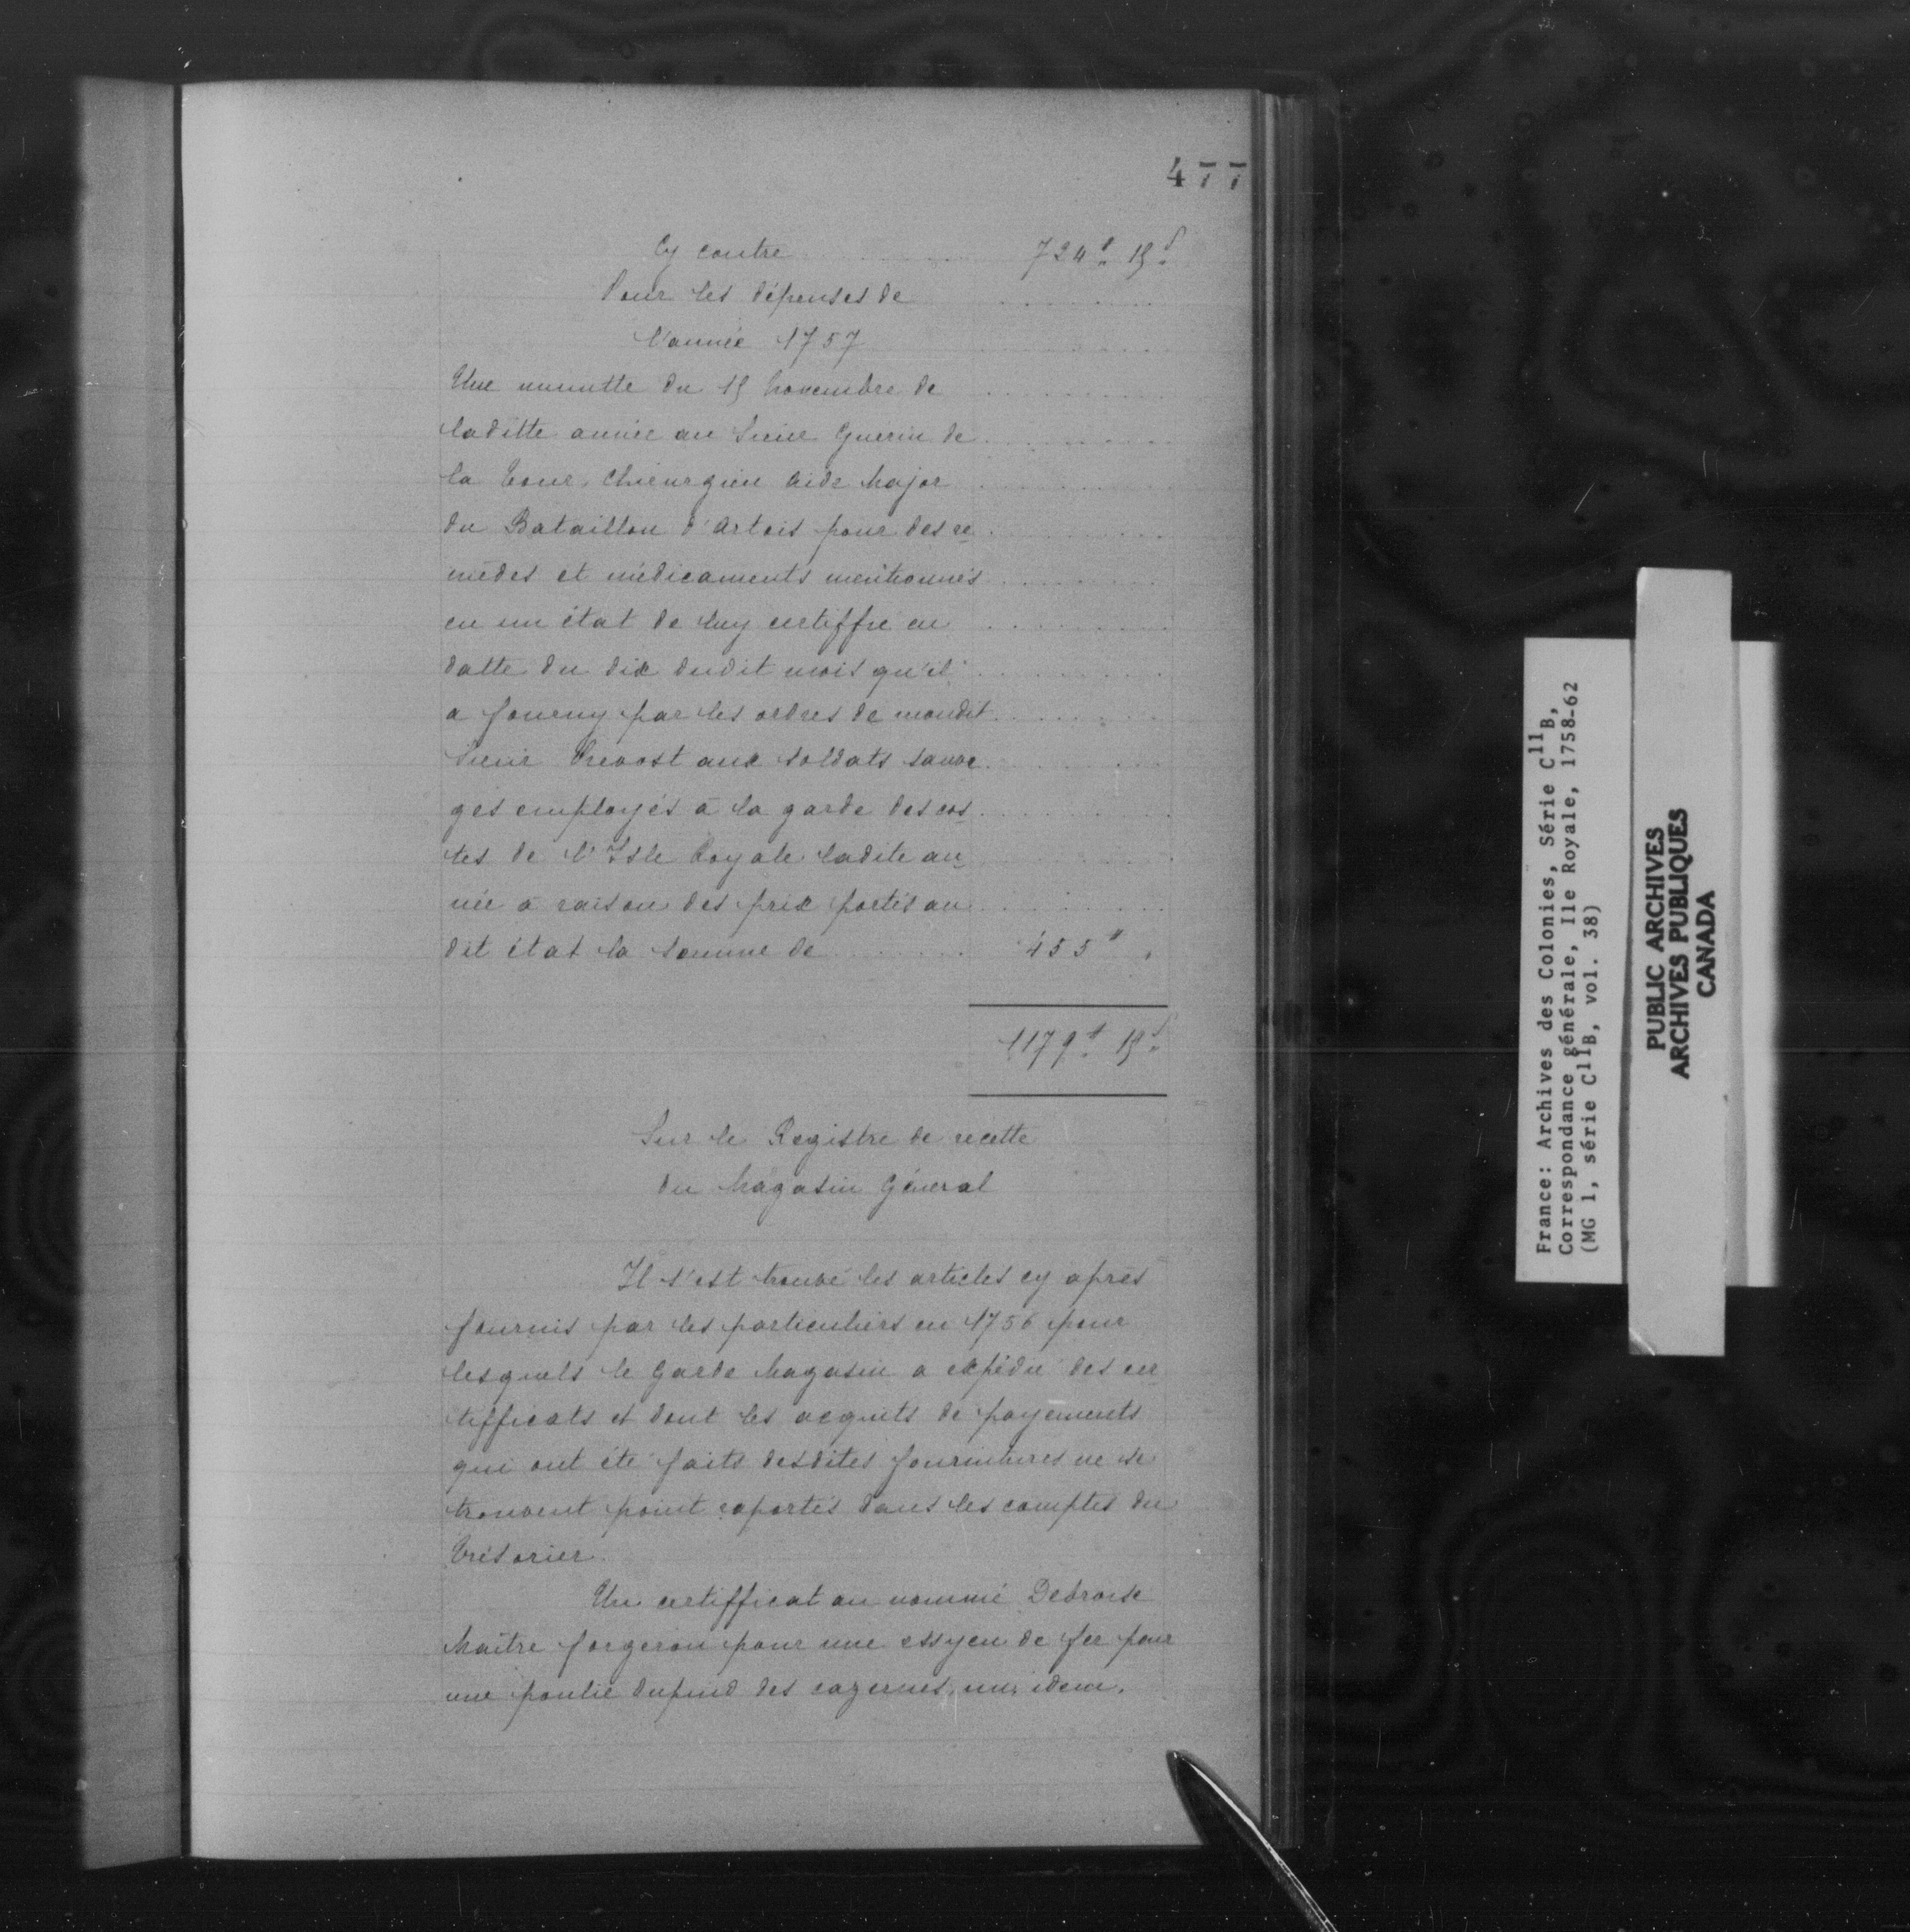 477
Cy contre 724# 15s
Pour les dépenses de
l'année 1757
Une minutte du 15 Novembre de
laditte année au Sieur Guerin de
la Tour, Chirurgien Aide Major
du Bataillon d'Artois pour des re
mèdes et médicaments mentionnés
en un état de luy certiffié en
datte du dix dudit mois qu'il
a fourny par les ordres de mondit
Sieur Prevost aux soldats sauva
ges employés à la garde des cos
tes de l'Isle Royale ladite an
née à raison des prix portés au
dit état la somme de 455"
1179# 15s
Sur le Registre de recette
du Magasin Général
Il s'est trouvé les articles cy après
fournis par les particuliers en 1756 pour
lesquels le Garde Magasin a expédié des cer
tifficats et dont les acquits de payements
qui ont été faits desdites fournitures ne se
trouvent point raportés dans les comptes du
Trésorier.
Un certifficat au nommé Debroise
Maître forgeron pour une essyeu de fer pour
une poulie des cazernes, idem.
France: Archives des Colonies, Série C11B,
Correspondance générale, Ile Royale, 1758-62
(MG 1, série C11B, vol. 38)
PUBLIC ARCHIVES
ARCHIVES PUBLIQUES
CANADA